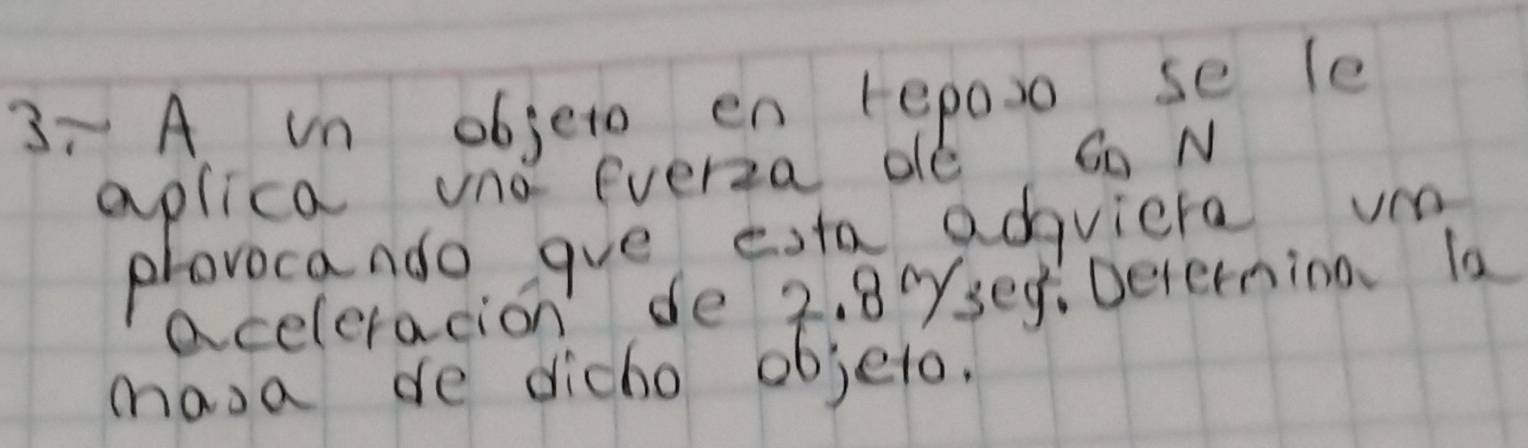 3.- A un objeto en reposo se le
aplica una fuerza de 60 N
provocando que esta adquiera una
aceleración de 2.8 m/seg². Determina la
masa de dicho objeto.